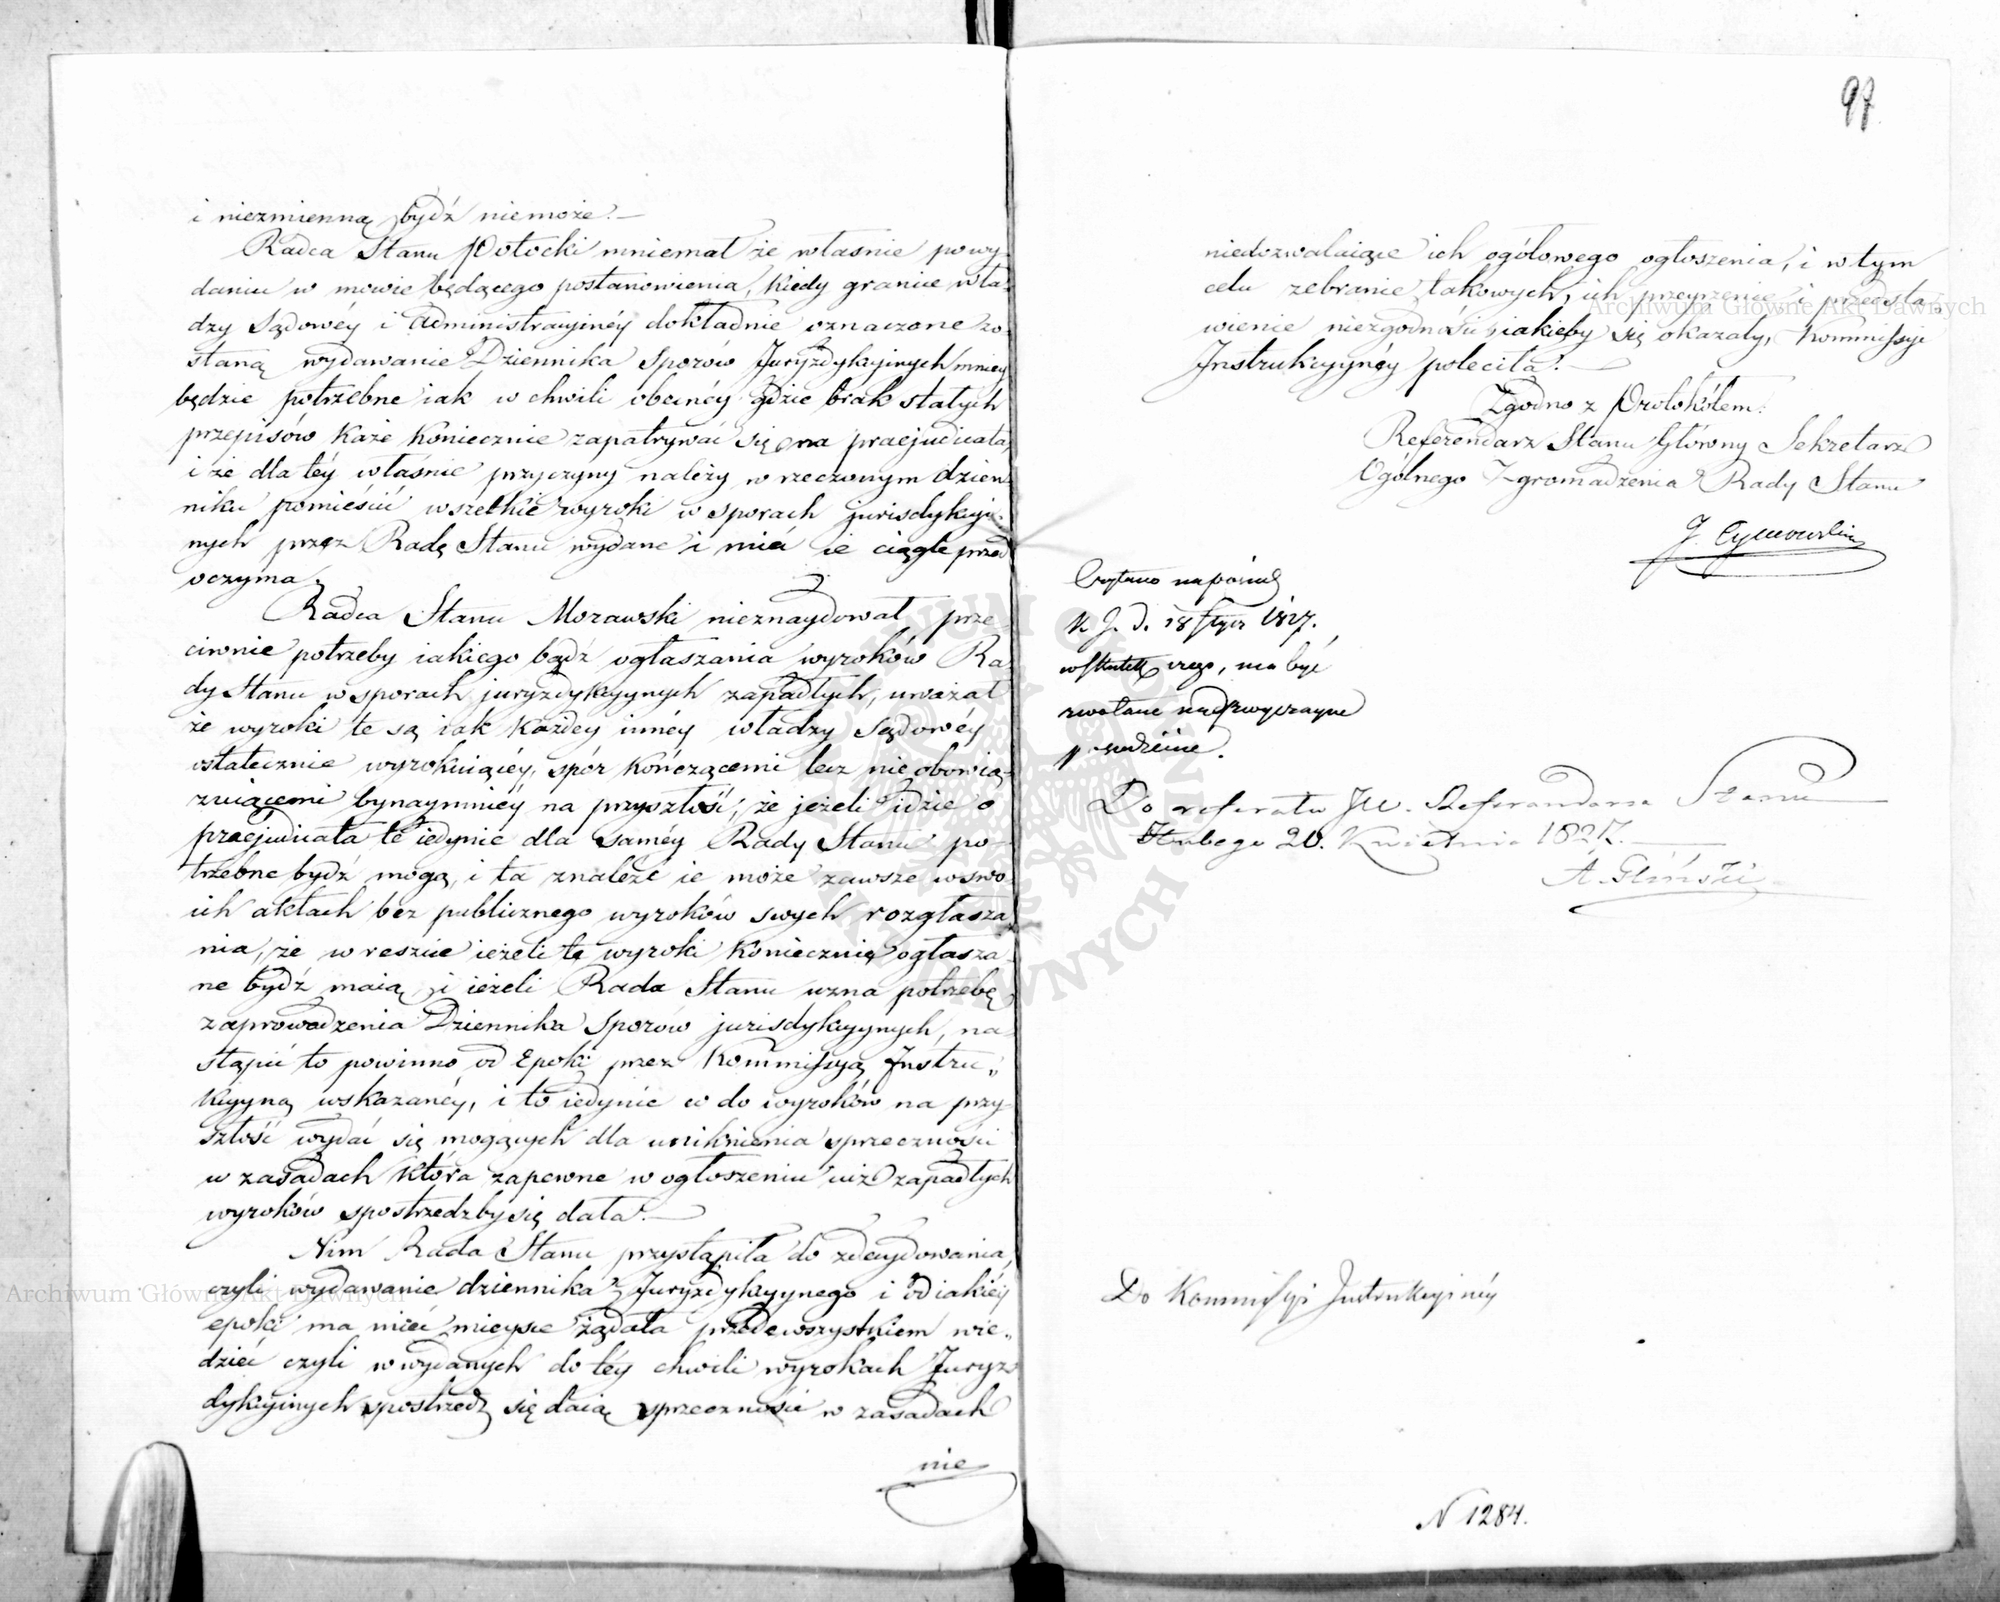 i niezmienną bydź niemoże.—
Radca Stanu Potocki mniemał że własnie po wy-
daniu w mowie będącego postanowienia, kiedy granice wła-
dzy Sądowéy i Administracyinéy dokładnie oznaczone zo-
staną wydawanie Dziennika Sporów Juryzdykcyinych mniey
będzie potrzebne iak w chwili obecnéy gdzie brak stałych
przepisów każe koniecznie zapatrywać się na praejudicata,
i że dla téy właśnie przyczyny należy w rzeczonym dzien-
niku pomieścić wszelkie wyroki w sporach jurisdykcyi-
nych przez Radę Stanu wydane i mieć ie ciągle przed
oczyma.
Radca Stanu Morawski nieznaydował prze-
ciwnie potrzeby iakiego bądź ogłaszania wyroków Ra-
dy Stanu w sporach juryzdykcyynych zapadłych, uważał
że wyroki te są iak każdey innéy władzy Sądowéy
ostatecznie wyrokuiącéy, spór kończącemi lecz nie obowią-
zuiącemi bynaymniéy na przyszłość, że jeżeli idzie o
praejudicata te iedynie dla saméy Rady Stanu po-
trzebne bydź mogą, i ta znaleźć ie może zawsze w swo-
ich aktach bez publicznego wyroków swych rozgłasza-
nia, że w reszcie ieżeli te wyroki koniecznie ogłasza-
ne bydź maią, i ieżeli Rada Stanu uzna potrzebę
zaprowadzenia Dziennika Sporów jurisdykcyynych, na-
stąpić to powinno od Epoki przez Kommissyą Instru-
kcyyną wskazanéy, i to iedynie co do wyroków na przy-
szłość wydać się mogących dla uniknienia sprzeczności
w zasadach która zapewne w ogłoszeniu iuż zapadłych
wyroków spostrzedz by się dała.—
Nim Rada Stanu przystąpiła do zdecydowania
czyli wydawanie dziennika Juryzdykcyynego i od iakiéy
epoki ma mieć mieysce żądała przedewszystkiem wie-
dzieć czyli w wydanych do téy chwili wyrokach Juryz-
dykcyinych spostrzedz się daią sprzeczności w zasadach
nie
97
niedozwalaiące ich ogólowego ogłoszenia, i w tym
celu zebranie takowych, ich przeyrzenie i przedsta-
wienie niezgodności iakieby się okazały, Kommissyi
Instrukcyynéy poleciła.—
Zgodno z Protokółem.
Referendarz Stanu Główny Sekretarz
Ogólnego Zgromadzenia Rady Stanu
J. Tymowski
Czytano na posied
K. J. d. 18 Stycz 1827.
wskutek czego, ma być
zwołane nadzwyczayne
posiedzenie.
Do referatu JW. Referendarza Stanu
Hubego 20. Kwietnia 1827.
A. Gliński
Do Kommissyi Instrukcyinéy
N 1284.
Archiwum Główne Akt Dawnych
Archiwum Główne Akt Dawnych